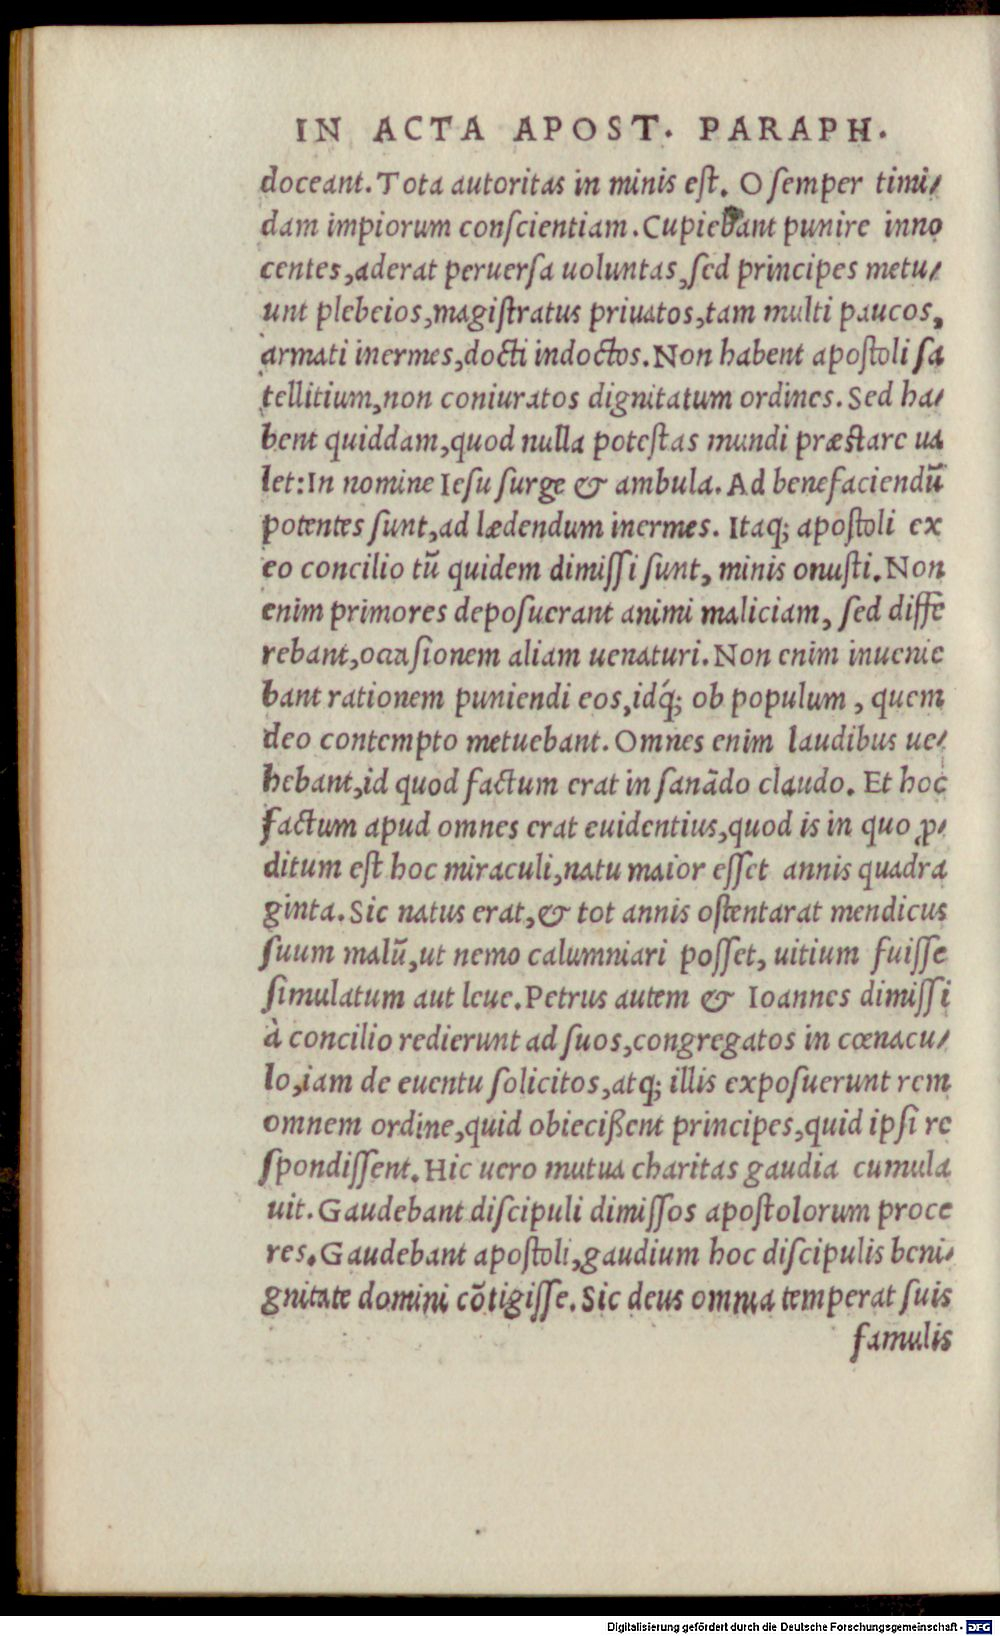 IN ACTA APOST. PARAPH.
doceant. Tota autoritas in minis eſt. O ſemper timi⸗
dam impiorum conſcientiam. Cupiebant punire inno
centes, aderat peruerſa uoluntas, ſed principes metu⸗
unt plebeios, magiſtratus priuatos, tam multi paucos,
armati inermes, docti indoctos. Non habent apoſtoli ſa
tellitium, non coniuratos dignitatum ordines. Sed ha⸗
bent quiddam, quod nulla poteſtas mundi præſtare ua
let: In nomine Ieſu ſurge & ambula. Ad benefaciendũ
potentes ſunt, ad lædendum inermes. Itaq; apoſtoli ex
eo concilio tũ quidem dimiſſi ſunt, minis onuſti. Non
enim primores depoſuerant animi maliciam, ſed diffe
rebant, occaſionem aliam uenaturi. Non enim inuenie
bant rationem puniendi eos, idq́; ob populum, quem
deo contempto metuebant. Omnes enim laudibus ue⸗
hebant, id quod factum erat in ſanãdo claudo. Et hoc
factum apud omnes erat euidentius, quod is in quo ꝓ⸗
ditum eſt hoc miraculi, natu maior eſſet annis quadra
ginta. Sic natus erat, & tot annis oſtentarat mendicus
ſuum malũ, ut nemo calumniari poſſet, uitium fuiſſe
ſimulatum aut leue. Petrus autem & Ioannes dimiſſi
à concilio redierunt ad ſuos, congregatos in cœnacu⸗
lo, iam de euentu ſolicitos, atq; illis expoſuerunt rem
omnem ordine, quid obieciſſent principes, quid ipſi re
ſpondiſſent. Hic uero mutua charitas gaudia cumula
uit. Gaudebant diſcipuli dimiſſos apoſtolorum proce
res. Gaudebant apoſtoli, gaudium hoc diſcipulis beni⸗
gnitate domini cõtigiſſe. Sic deus omnia temperat ſuis
famulis
Digitalisierung gefördert durch die Deutsche Forschungsgemeinschaft - DFG